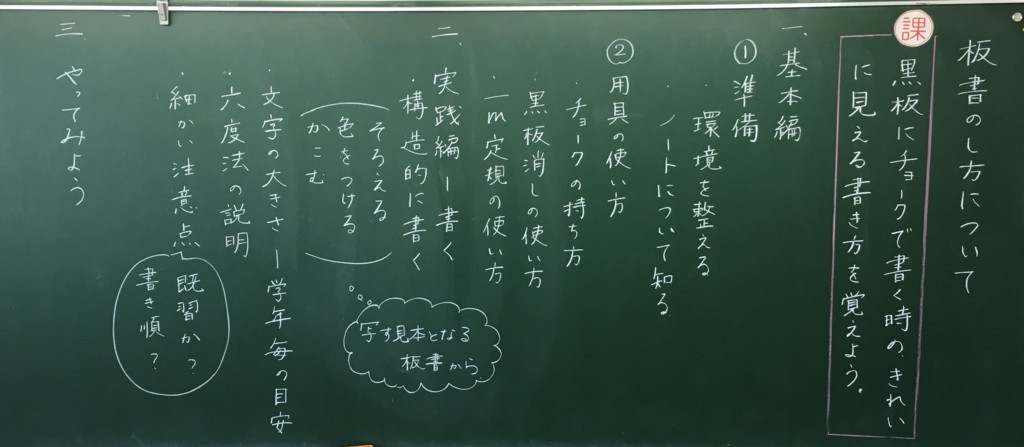 板書のし方について
課
黒板にチョークで書く時の、きれい
に見える書き方を覚えよう。
一、基本編
①準備
・環境を整える
・ノートについて知る
②用具の使い方
・チョークの持ち方
・黒板消しの使い方
・一m定規の使い方
二、実践編ー書く
・構造的に書く
そろえる
色をつける
かこむ
写す見本となる
板書から
・文字の大きさー学年毎の目安
・六度法の説明
・細かい注意点
既習か?
書き順?
三 やってみよう